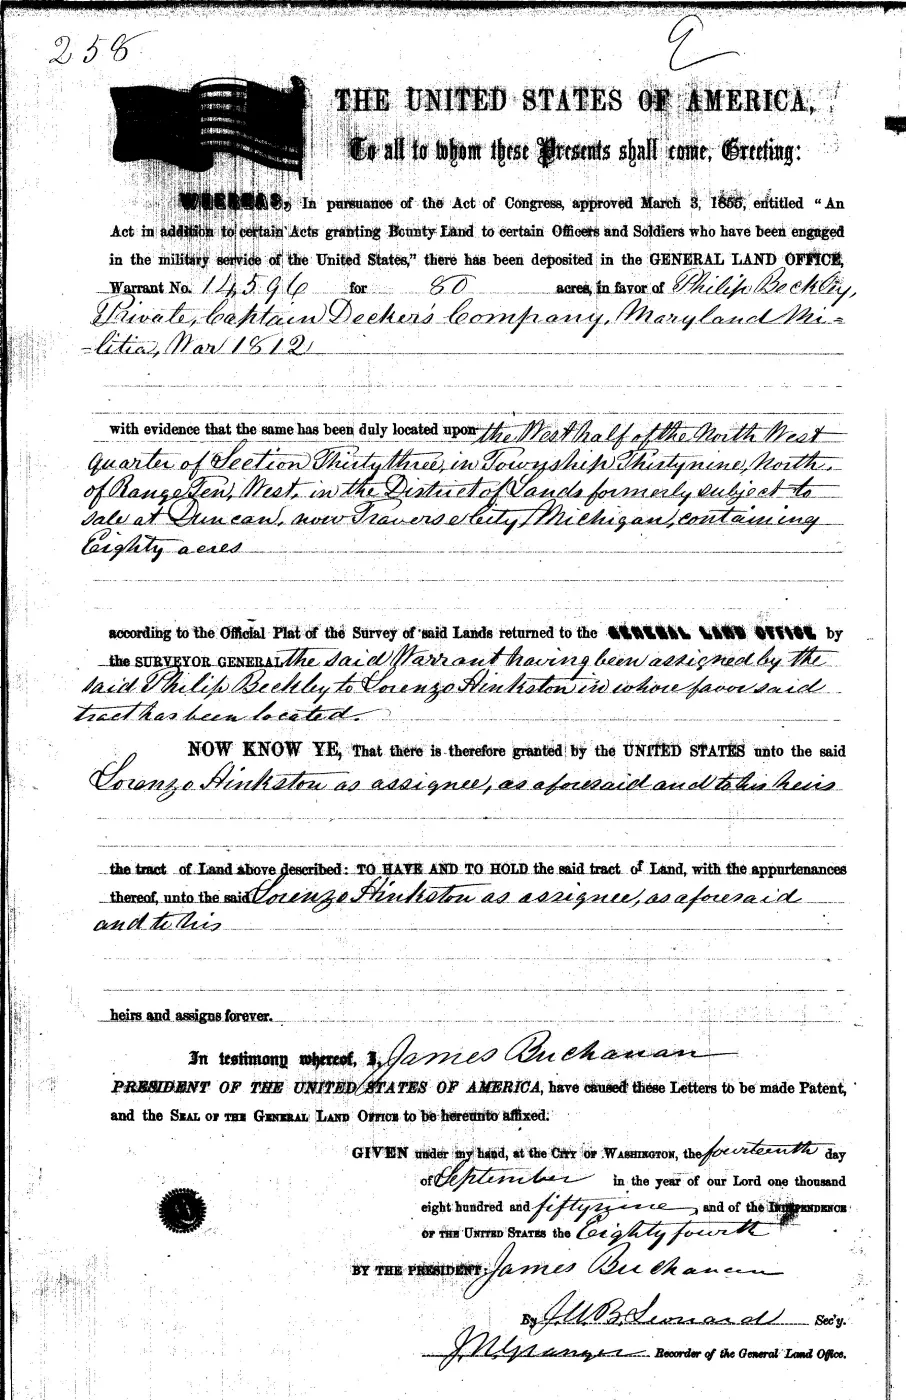 258
THE UNITED STATES OF AMERICA,
To all to whom these Presents shall come, Greeting:
WHEREAS, In pursuance of the Act of Congress, approved March 3, 1855, entitled "An
Act in addition to certain Acts granting Bounty Land to certain Officers and Soldiers who have been engaged
in the military service of the United States," there has been deposited in the GENERAL LAND OFFICE,
Warrant No. 14,596 for 80 acres, in favor of Philip Beckley,
Private, Captain Decker's Company, Maryland Mi=
=litia, War 1812
with evidence that the same has been duly located upon the West half of the North West
quarter of Section Thirty three, in Township Thirty nine, North,
of Range Ten, West, in the District of Lands formerly subject to
sale at Duncan, now Traverse City, Michigan, containing
Eighty acres
according to the Official Plat of the Survey of said Lands returned to the GENERAL LAND OFFICE by
the SURVEYOR GENERAL the said Warrant having been assigned by the
said Philip Beckley to Lorenzo Hinkston in whose favor said
tract has been located.
NOW KNOW YE, That there is therefore granted by the UNITED STATES unto the said
Lorenzo Hinkston as assignee, as aforesaid and to his heirs
the tract of Land above described: TO HAVE AND TO HOLD the said tract of Land, with the appurtenances
thereof, unto the said Lorenzo Hinkston as assignee, as aforesaid
and to his
heirs and assigns forever.
In testimony whereof, I, James Buchanan
PRESIDENT OF THE UNITED STATES OF AMERICA, have caused these Letters to be made Patent,
and the SEAL OF THE GENERAL LAND OFFICE to be hereunto affixed.
GIVEN under my hand, at the CITY OF WASHINGTON, the fourteenth day
of September in the year of our Lord one thousand
eight hundred and fifty nine, and of the INDEPENDENCE
OF THE UNITED STATES the Eighty fourth
BY THE PRESIDENT: James Buchanan
By J.U.B. Leonard Sec'y.
J.N. Granger Recorder of the General Land Office.